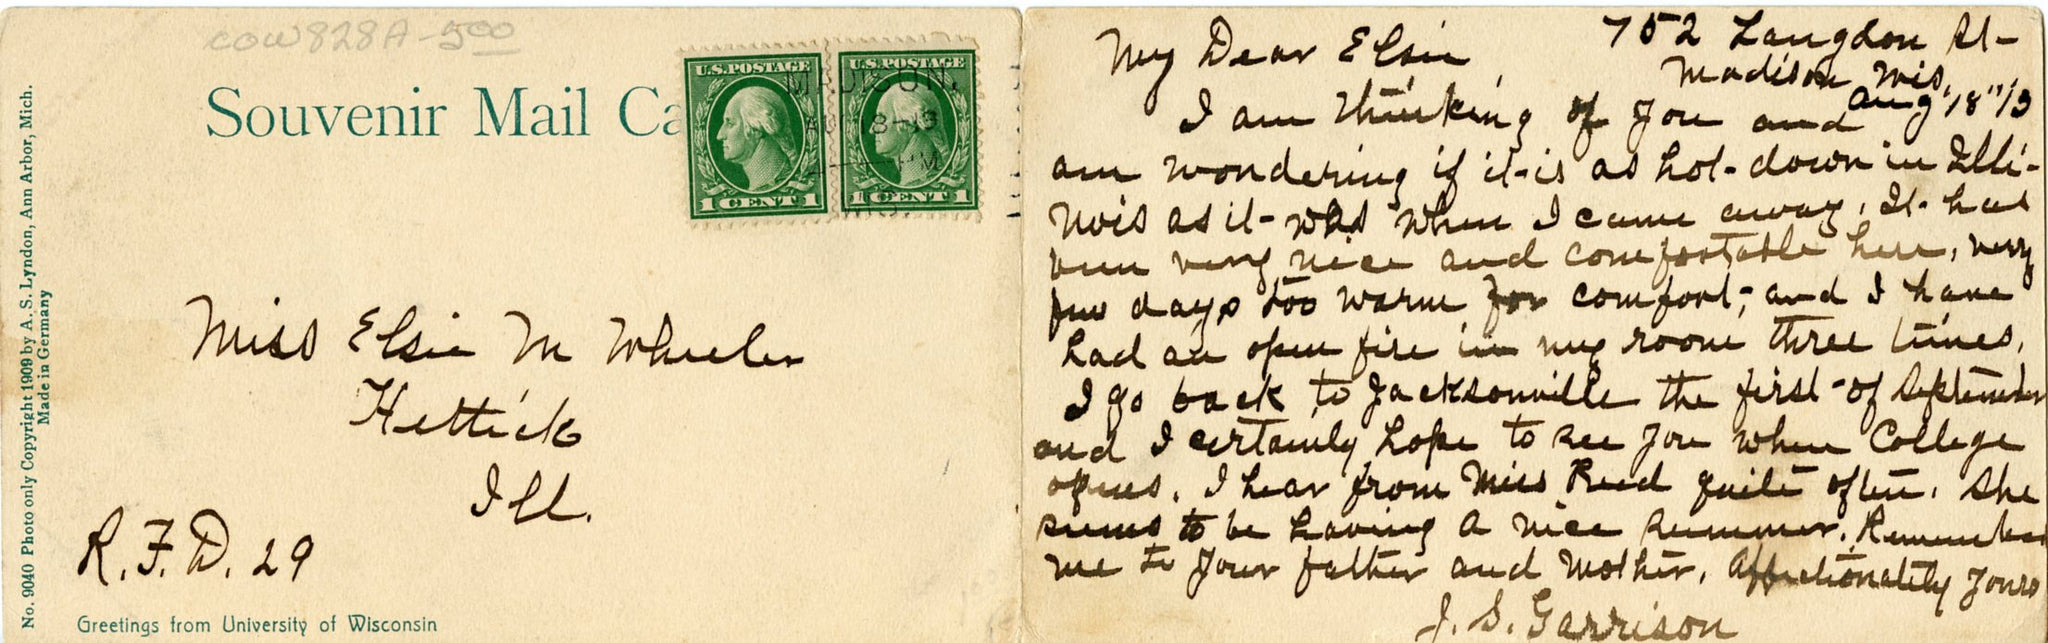 COW828A-5.00
Souvenir Mail Ca
U.S. POSTAGE
1 CENT 1
U.S. POSTAGE
1 CENT 1
MADISON,
AU 18-13
PM
No. 9040 Photo only Copyright 1909 by A. S. Lyndon, Ann Arbor, Mich.
Made in Germany
Miss Elsie M Wheeler
Hettick
Ill.
R. F. D. 29
Greetings from University of Wisconsin
752 Langdon St-
Madison Wis,
Aug 18" 13
My Dear Elsie,
I am thinking of you and
am wondering if it is as hot down in Illi-
nois as it was when I came away. It has
been very nice and comfortable here, very
few days too warm for comfort, and I have
had an open fire in my room three times.
I go back to Jacksonville the first of September
and I certainly hope to see you when College
opens. I hear from Miss Reed quite often. She
seems to be having a nice summer. Remember
me to your father and mother. Affectionately yours
J. S. Garrison